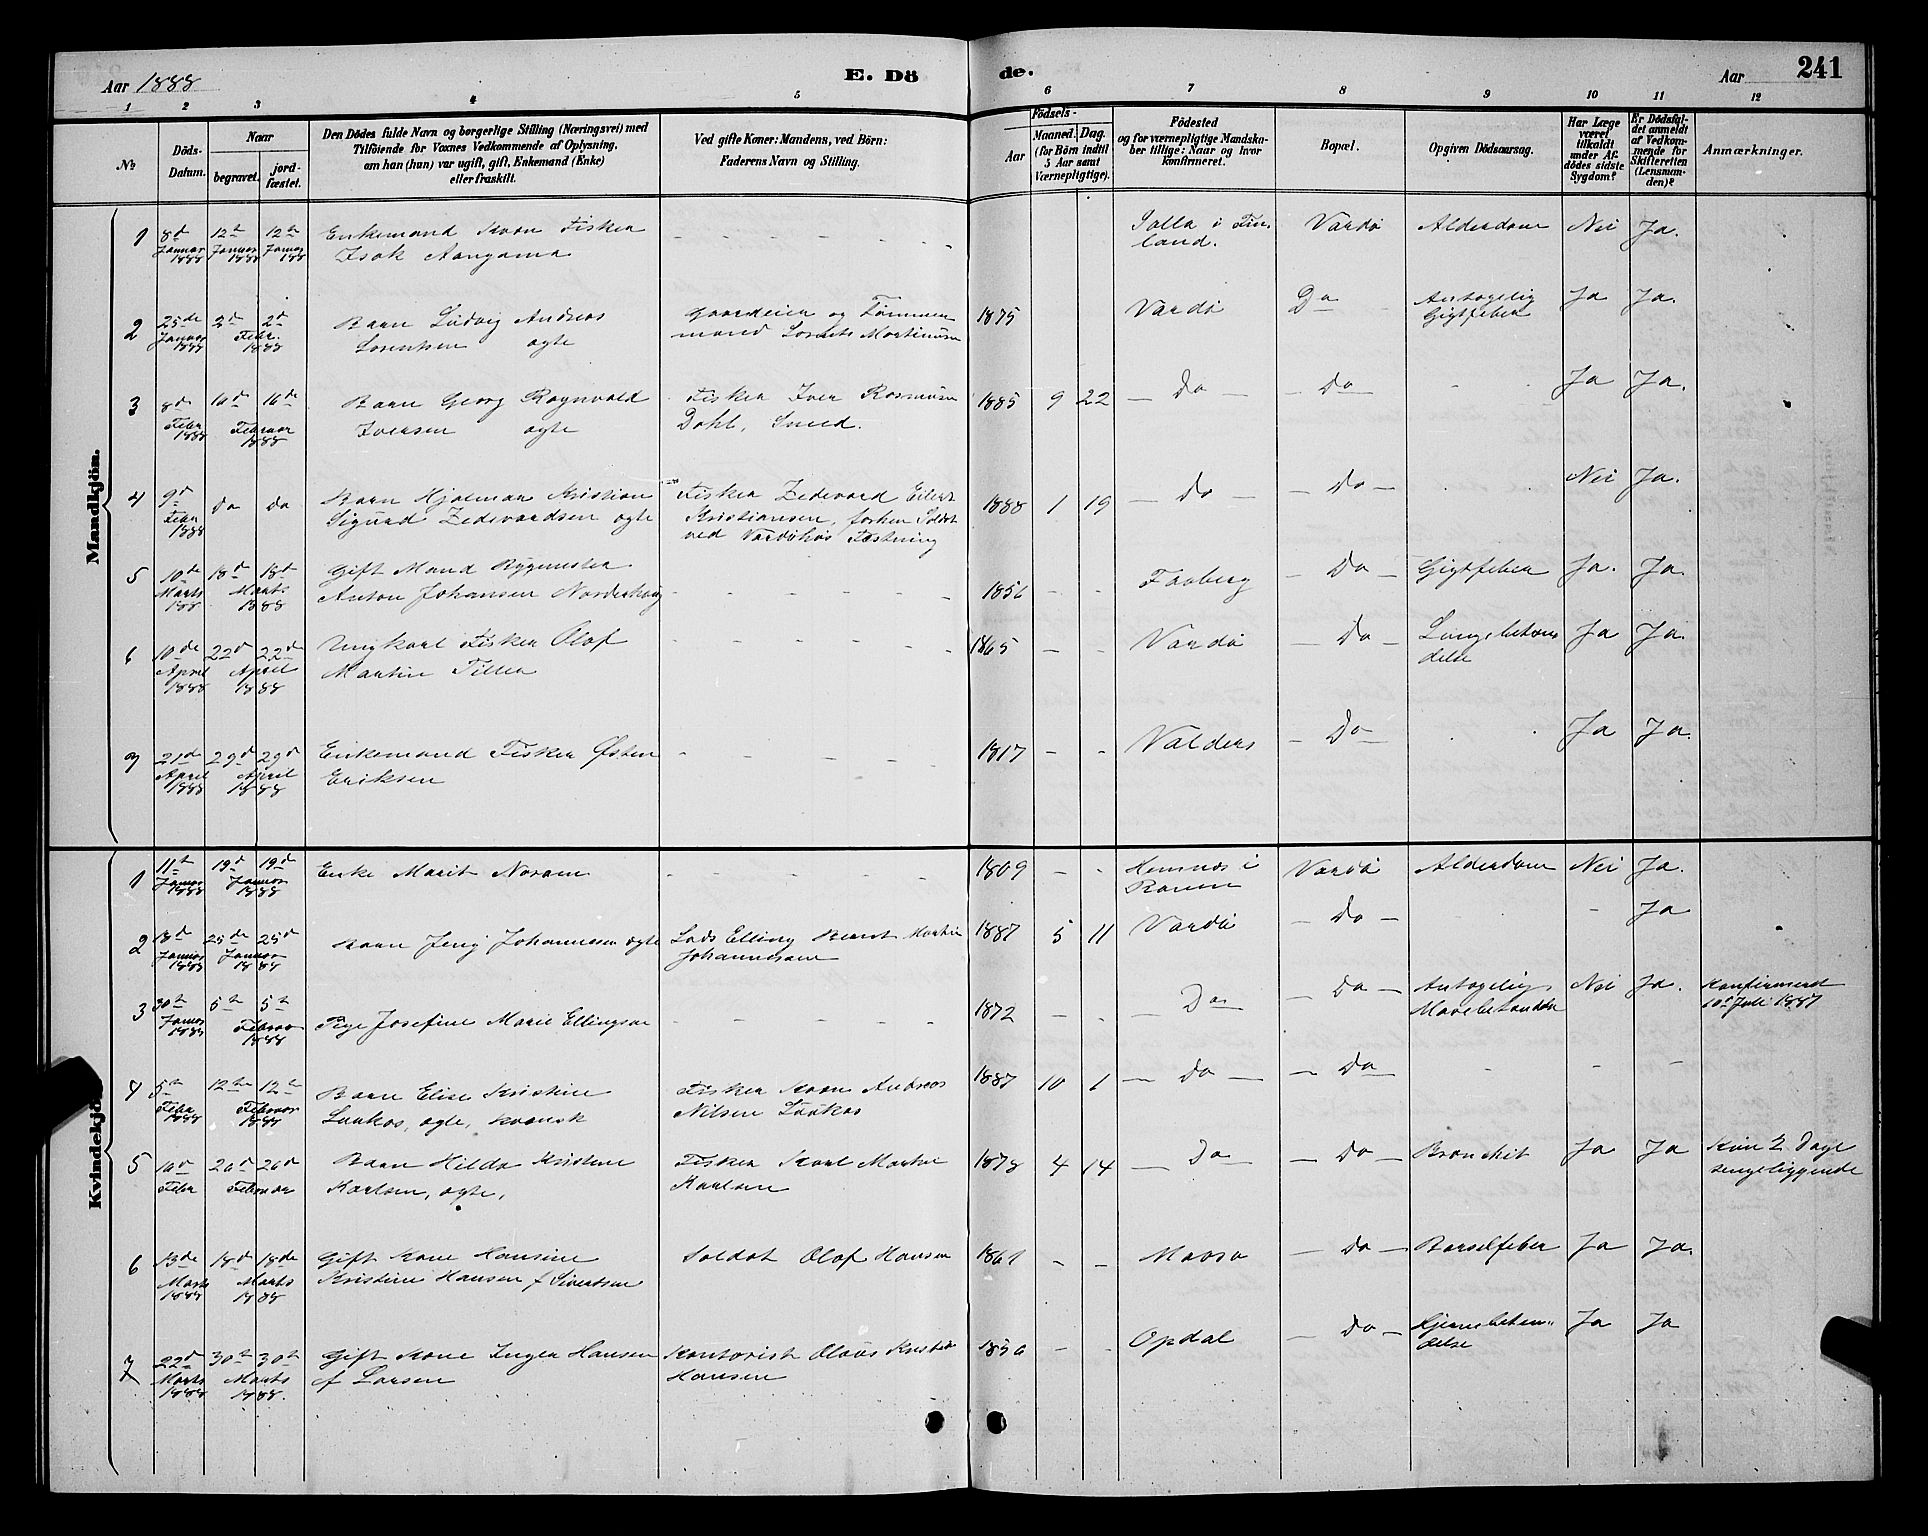 Aar 1888
E. Dö
de.
Aar
241
1 2 3 4 5 6 7 8 9 10 11 12
№
Döds-
Datum.
Naar
begravet.
jord-
fæstet.
Den Dödes fulde Navn og borgerlige Stilling (Næringsvei) med
Tilföiende for Voxnes Vedkommende af Oplysning,
om han (hun) var ugift, gift, Enkemand (Enke)
eller fraskilt.
Ved gifte Koner: Mandens, ved Börn:
Faderens Navn og Stilling.
Födsels-
Aar
Maaned. Dag.
(for Börn indtil
5 Aar samt
Værnepligtige).
Födested
og for værnepligtige Mandska-
ber tillige: Naar og hvor
konfirmeret.
Bopæl.
Opgiven Dödsaarsag.
Har Læge
været
tilkaldt
under Af-
dödes sidste
Sygdom?
Er Dödsfal-
det anmeldt
af Vedkom-
mende for
Skifteretten
(Lensman-
den)?
Anmærkninger.
Mandkjön.
1 8d Januar 1888 12te Januar 1888 12te Januar 188
Enkemand Kvæn Fisker
Isak Aangama
Salla i Fin-
land.
Vardö Alderdom Nei Ja.
2 25de Januar 1888 2d 2d Febr. 1888
Barn Ludvig Andreas
Lorentsen ægte
Gaardeier og Tømmer
mand Lorents Martinusen
1875 Vardö Do
Antagelig
Gigtfeber
Ja Ja.
3 8d Febr 1888 16d 16de Februar 1888
Barn Georg Ragnvald
Iversen ægte
Fisker Iver Rasmusen
Dahl, Smed.
1885 9 22 — Do — — Do — Ja Ja.
4 9d Febr 1888 Do Do
Barn Hjalmar Kristian
Sigurd Zedevardsen ægte
Fisker Zedevard Eilert
Kristiansen, forhen Soldat
ved Vardöhus Fæstning
1888 1 19 — Do — — Do — Nei Ja.
5 10de Marts 188 18d 18d Marts 1888
Gift Mand Bygmester
Anton Johansen Norderhaug
1856 - - Faaberg — Do — Gigtfeber Ja. Ja.
6 10de April 1888 22d 22d April 1888
Ungkarl Fisker Olaf
Martin Tiller
1865 - - Vardö — Do —
Lungebetæn
delse
Ja Ja.
7 21de April 1888 29d 29d April 1888
Enkemand Fisker Østen
Eriksen
1817 - - Valders — Do — Ja Ja.
Kvindekjön.
1 11te Januar 1888 19d 19d Januar 1888
Enke Marit Noram
1809 - -
Hemnæs i
Ranen
Vardö Alderdom Nei Ja.
2 18d Januar 1888 25de 25d Januar 1888
Barn Jeny Johannesen ægte
Lods Elling Bernt Martin
Johannesen
1887 5 11 Vardö — Do — - Ja
3 30te Januar 1888 5te 5te Februar 1888
Pige Josefine Marie Ellingsen
1872 - - — Do — — Do —
Antagelig
Mavebetændelse
Nei Ja.
Konfirmeret
10de Juli 1887
4 5te Febr 1888 12te 12te Februar 1888
Barn Elise Kristine
Laukas, ægte, kvænsk
Fisker Kvæn Andreas
Nilsen Laukas
1887 10 1 — Do — — Do —
5 16d Febr 26d 26d Februar
Barn Hilda Kristine
Karlsen, ægte,
Fisker Karl Martin
Karlsen
1878 4 14 — Do — — Do — Bronchit Ja Ja
Kun 2 Dage
sengeliggende
6 13de Marts 1888 18d 18de Marts 1888
Gift Kone Hansine
Kristine Hansen f Sivertsen
Soldat Olaf Hansen
1861 - - Maasø — Do — Barselfeber Ja Ja.
7 22d Marts 1888 30te 30te Marts 1888.
Gift Kone Inger Hansen
f Larsen
Kontorist Olaus Kristian
Hansen
1856 - - Opdal — Do —
Hjernebetæn-
delse
Ja Ja